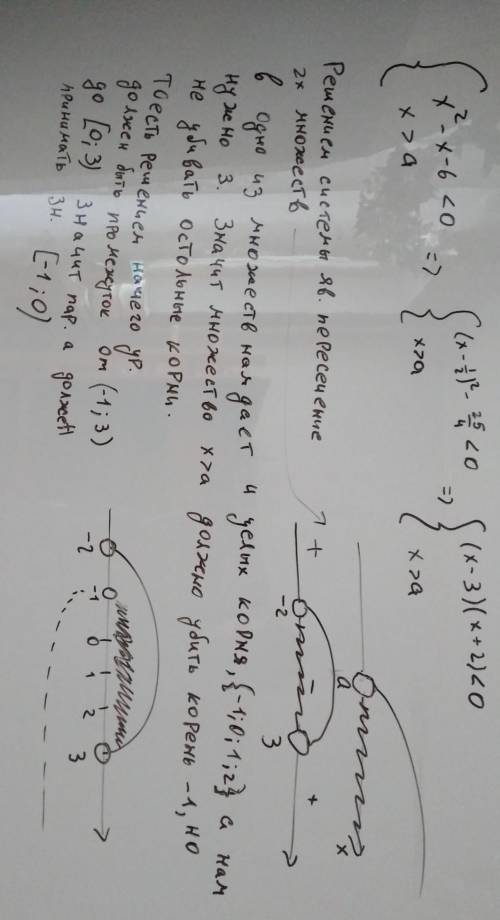 { x² - x - 6 < 0 => { (x - 1/2)² - 25/4 < 0 => { (x - 3)(x + 2) < 0
{ x > a { x > a { x > a
a x
+ -2 - 3 +
Решением системы яв. пересечение
2х множеств
в одно из множеств нам дает 4 целых корня, {-1; 0; 1; 2} а нам
нужно 3. Значит множество x > a должно убить корень -1, но
не убивать остольные корни.
Тоесть решением нашего ур.
должен быть промежуток от (-1; 3)
до [0; 3) Значит пар. а должен
принимать зн. [-1; 0)
-2 -1 0 1 2 3